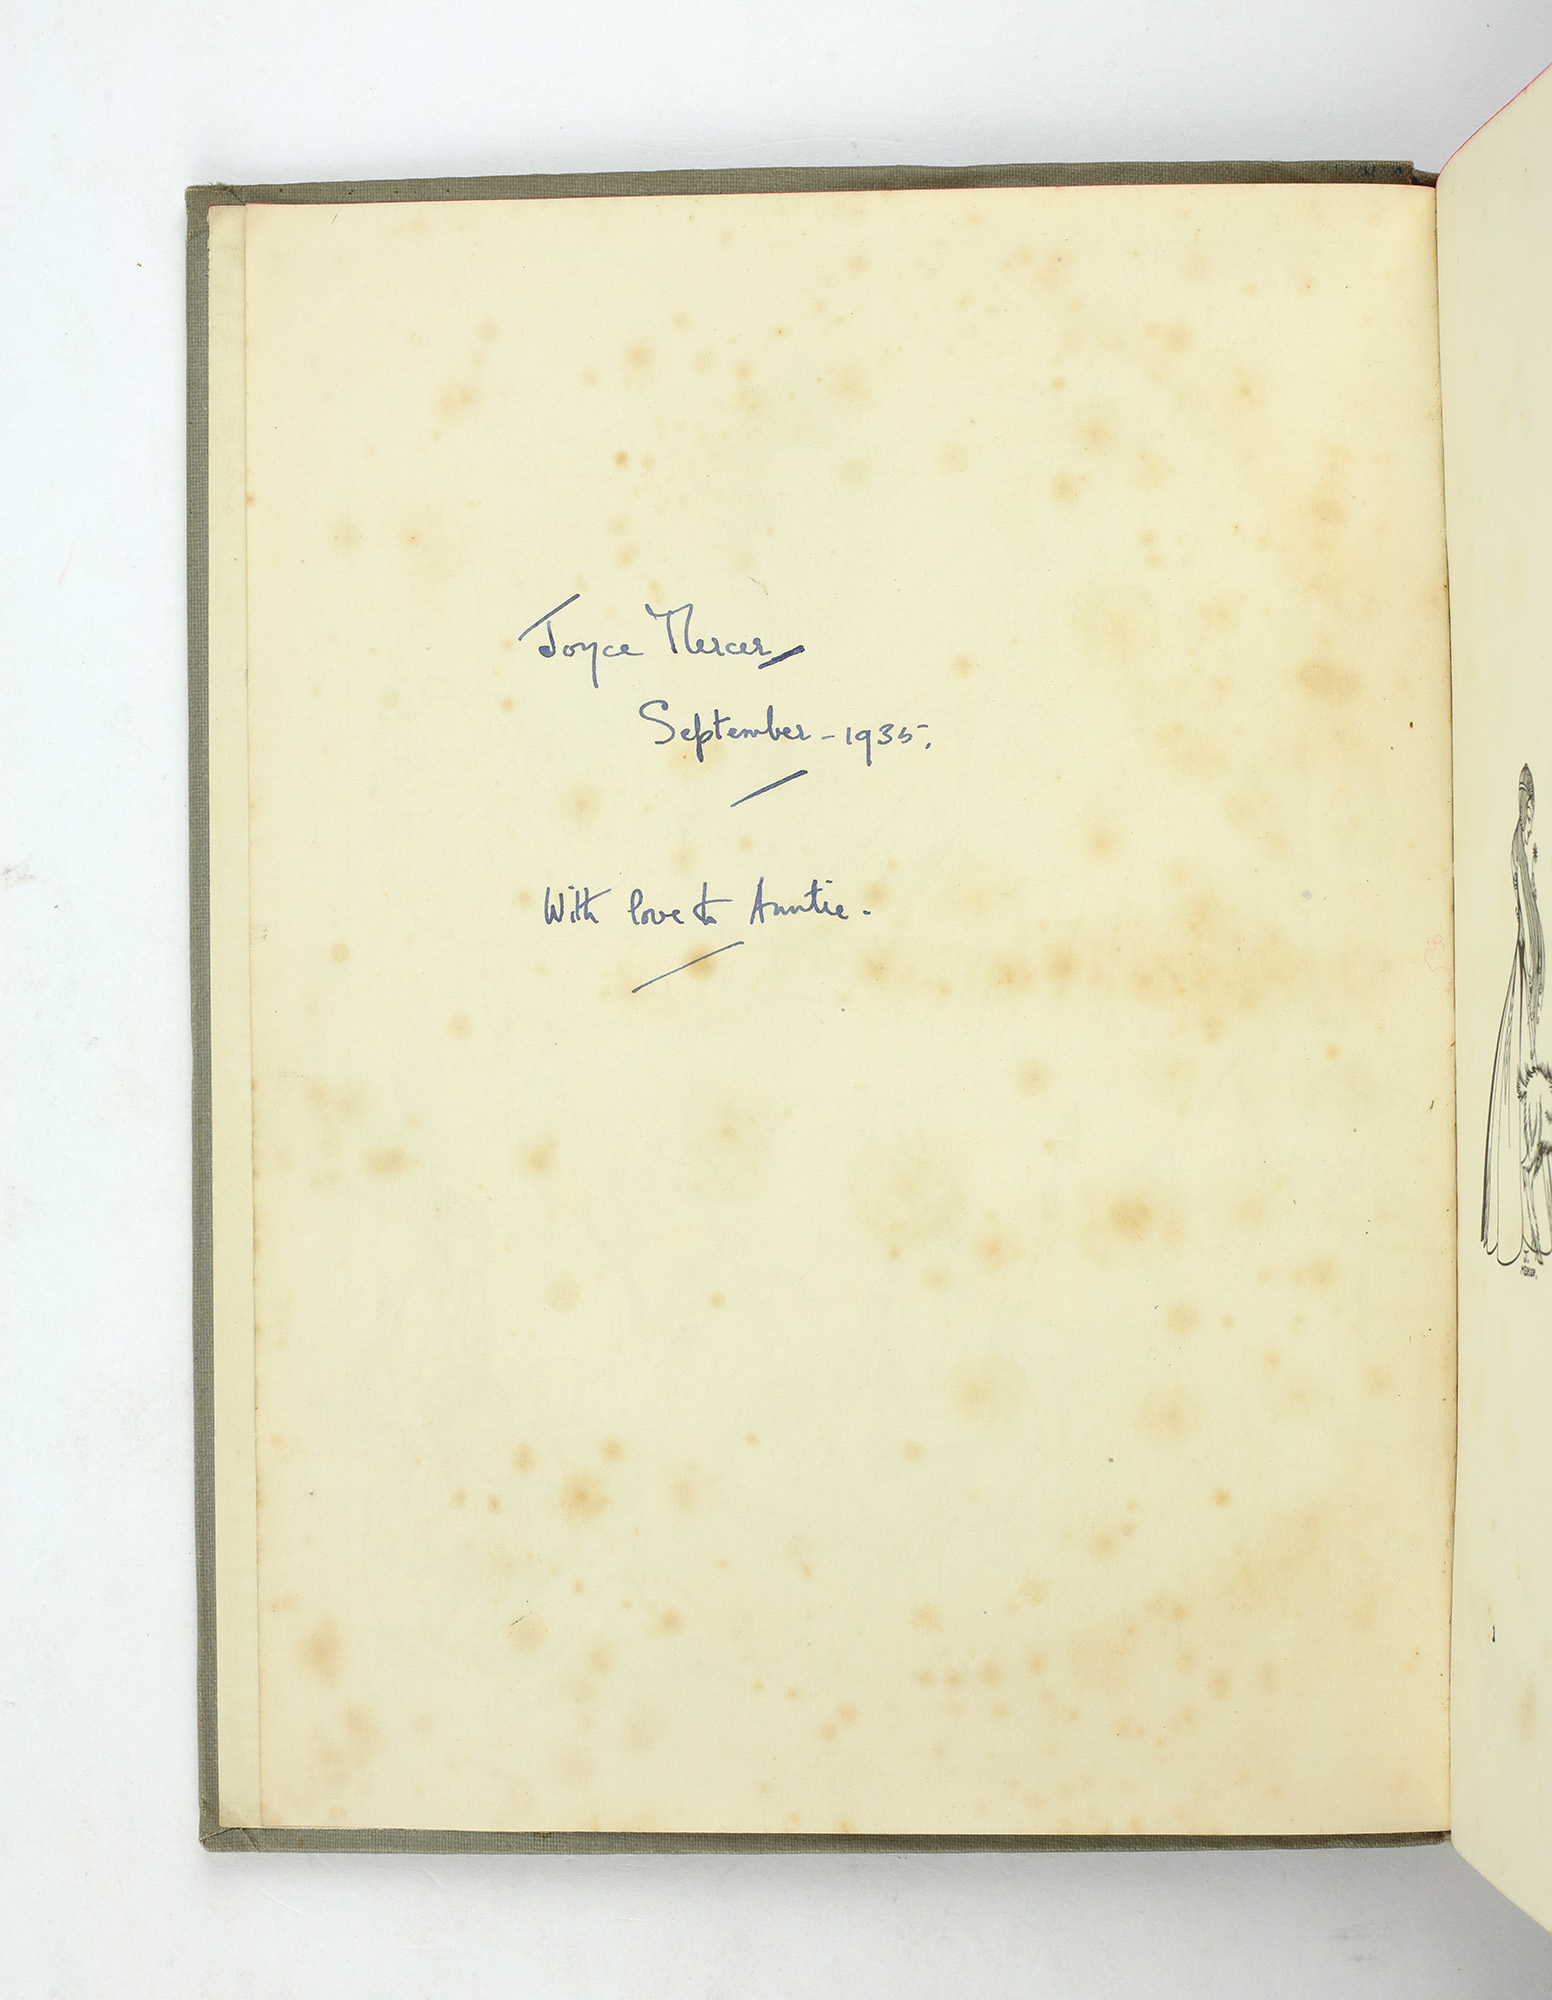 Joyce Mercer
September - 1935.
With love to Auntie.
J.
MERCER.